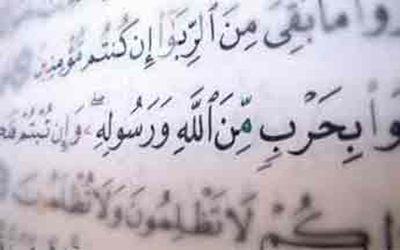 روا۟ مَا بَقِىَ مِنَ ٱلرِّبَوٰٓا۟ إِن كُنتُم مُّؤْمِنِينَ
وا۟ بِحَرْبٍ مِّنَ ٱللَّهِ وَرَسُولِهِۦ ۖ وَإِن تُبْتُمْ فَلَ
لِكُمْ لَا تَظْلِمُونَ وَلَا تُظْلَمُونَ